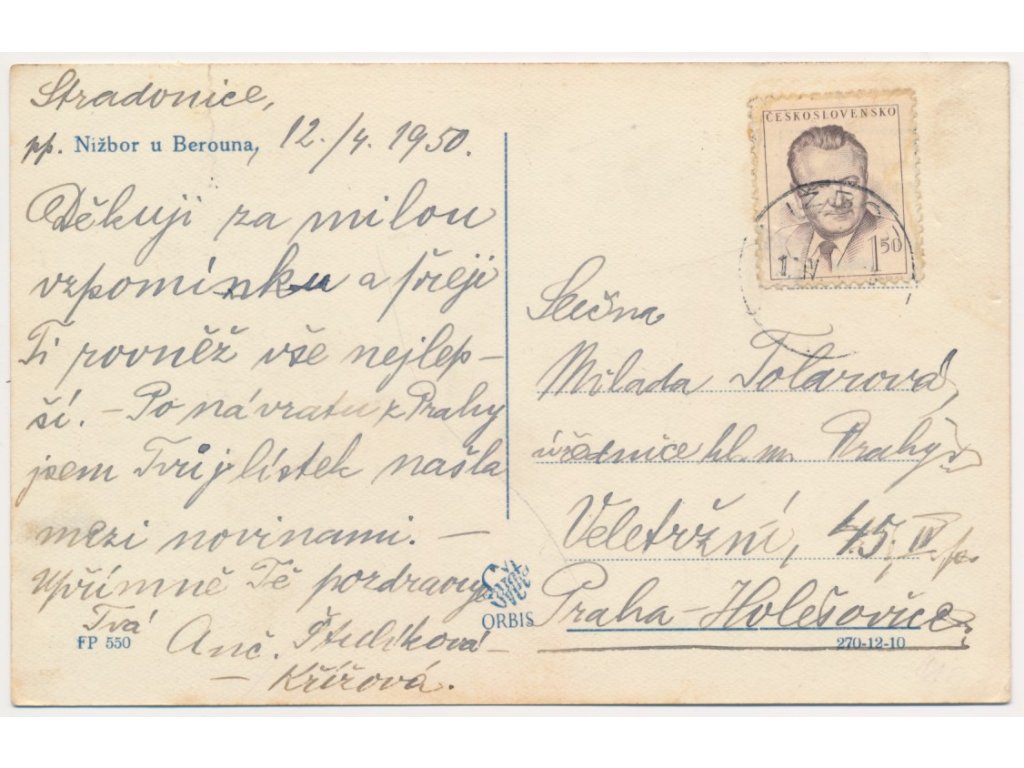 Stradonice,
pp. Nižbor u Berouna, 12./4. 1950.
Děkuji za milou
vzpomínku a přeji
Ti rovněž vše nejlep-
ší. - Po návratu z Prahy
jsem Tvůj lístek našla
mezi novinami. -
Upřímně Tě pozdravuje
Tvá
Anč.
- Křížová.
FP 550
Svět
ORBIS
ČESKOSLOVENSKO
1.50
Slečna
Milada Tolarová,
úřednice hl. m. Prahy
Veletržní, 45, IV. p.
Praha-Holešovice.
270-12-10